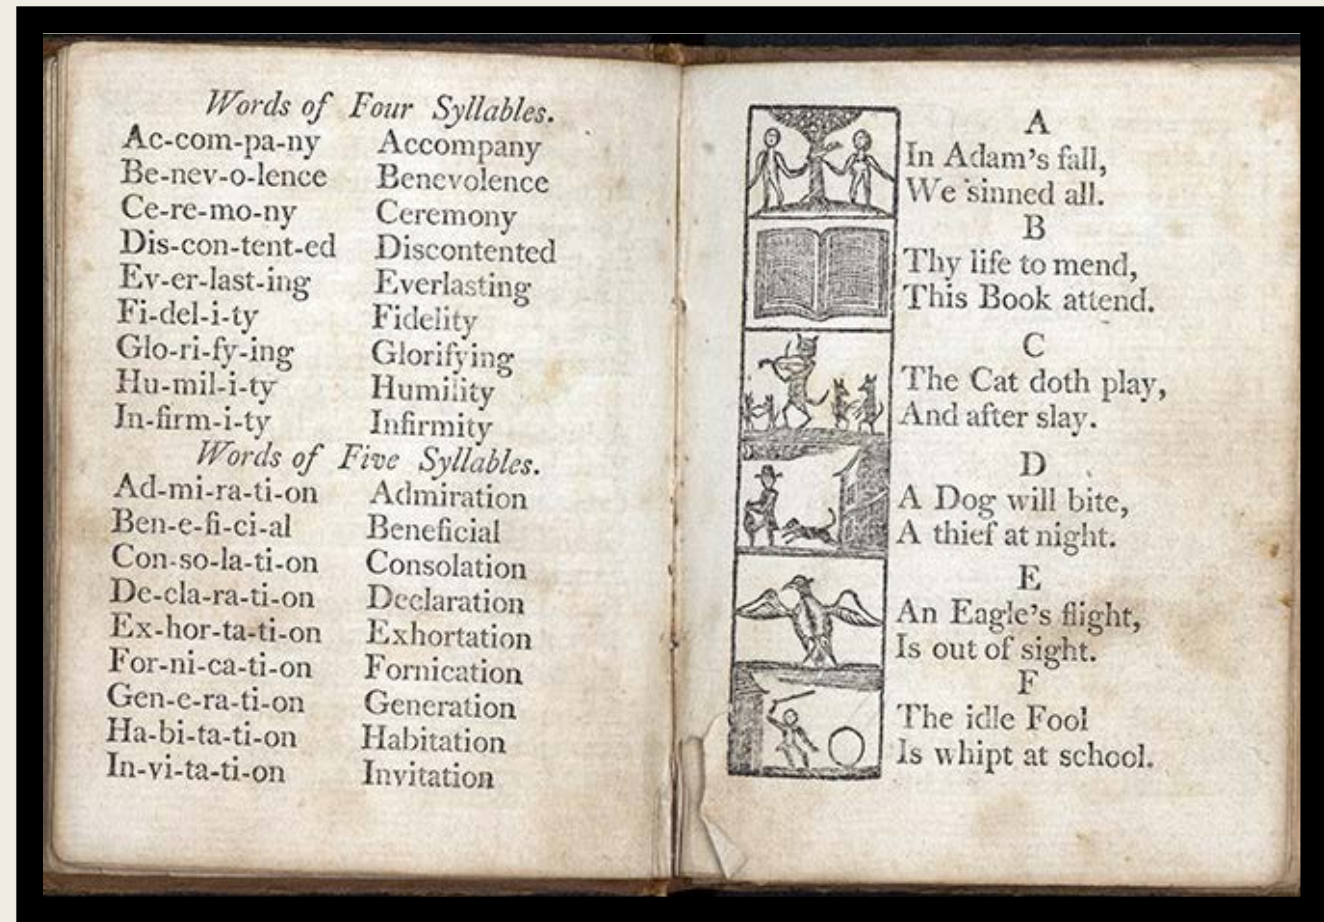 Words of Four Syllables.
Ac-com-pa-ny Accompany
Be-nev-o-lence Benevolence
Ce-re-mo-ny Ceremony
Dis-con-tent-ed Discontented
Ev-er-last-ing Everlasting
Fi-del-i-ty Fidelity
Glo-ri-fy-ing Glorifying
Hu-mil-i-ty Humility
In-firm-i-ty Infirmity
Words of Five Syllables.
Ad-mi-ra-ti-on Admiration
Ben-e-fi-ci-al Beneficial
Con-so-la-ti-on Consolation
De-cla-ra-ti-on Declaration
Ex-hor-ta-ti-on Exhortation
For-ni-ca-ti-on Fornication
Gen-e-ra-ti-on Generation
Ha-bi-ta-ti-on Habitation
In-vi-ta-ti-on Invitation
A
In Adam's fall,
We sinned all.
B
Thy life to mend,
This Book attend.
C
The Cat doth play,
And after slay.
D
A Dog will bite,
A thief at night.
E
An Eagle's flight,
Is out of sight.
F
The idle Fool
Is whipt at school.